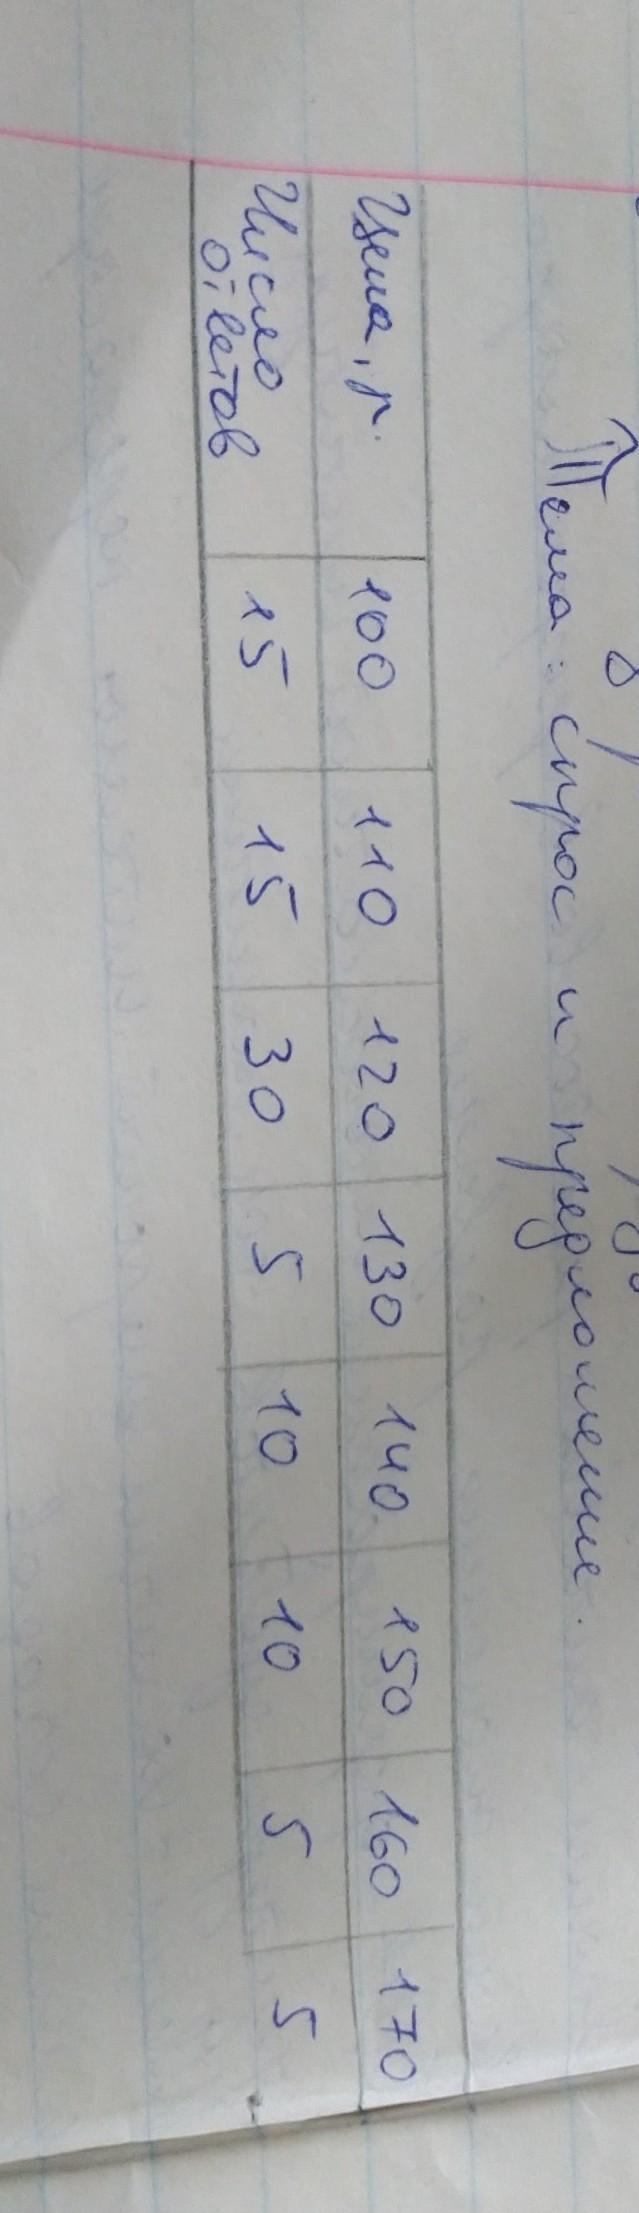 Тема: спрос и предложение.
Цена, р. 100 110 120 130 140 150 160 170
Число ответов 15 15 30 5 10 10 5 5